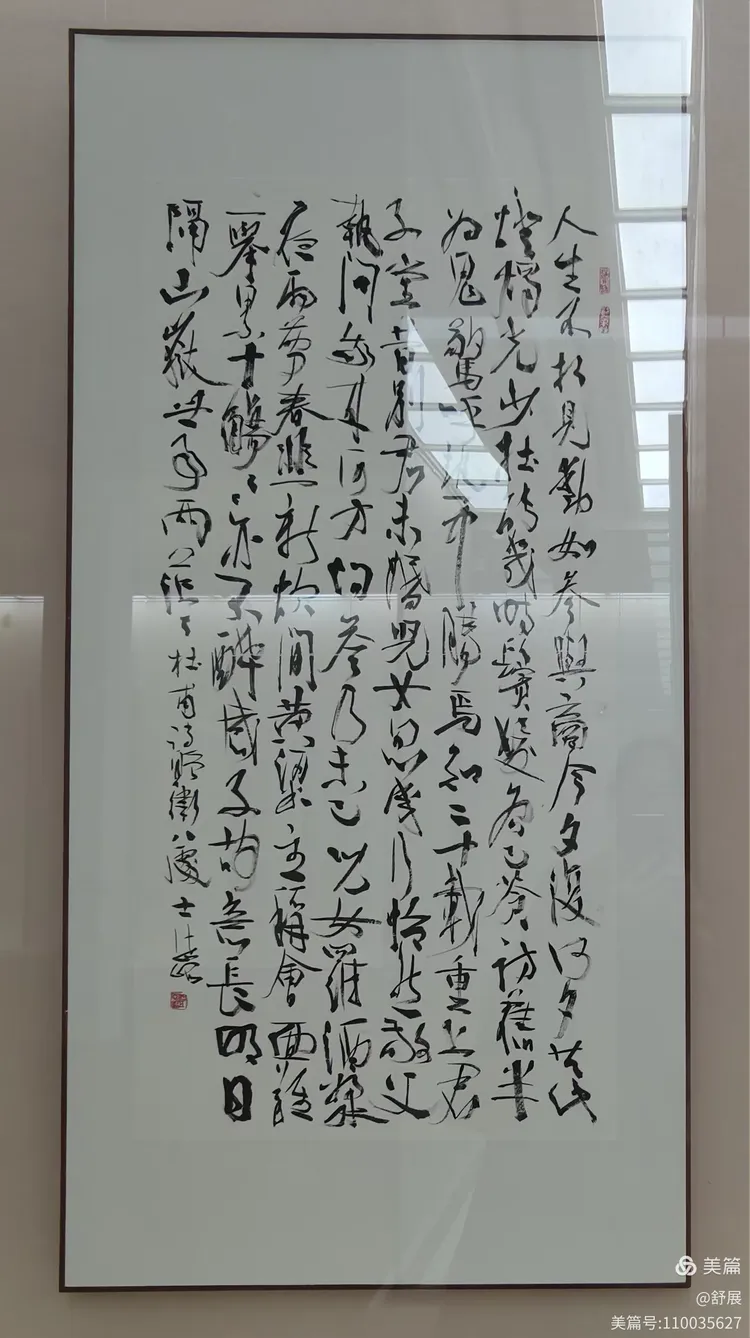 人生不相見動如參與商今夕復何夕共此
燈燭光少壯能幾時鬢髮各已蒼訪舊半
为鬼驚呼熱中腸焉知二十載重上君
子堂昔別君未婚兒女忽成行怡然敬父
執問我來何方問答乃未已兒女羅酒漿
夜雨剪春韭新炊間黄粱主稱會面難
一舉累十觴々亦不醉感子故意長明日
隔山嶽世事兩茫々杜甫詩贈衛八處士
美篇
@舒展
美篇号:110035627